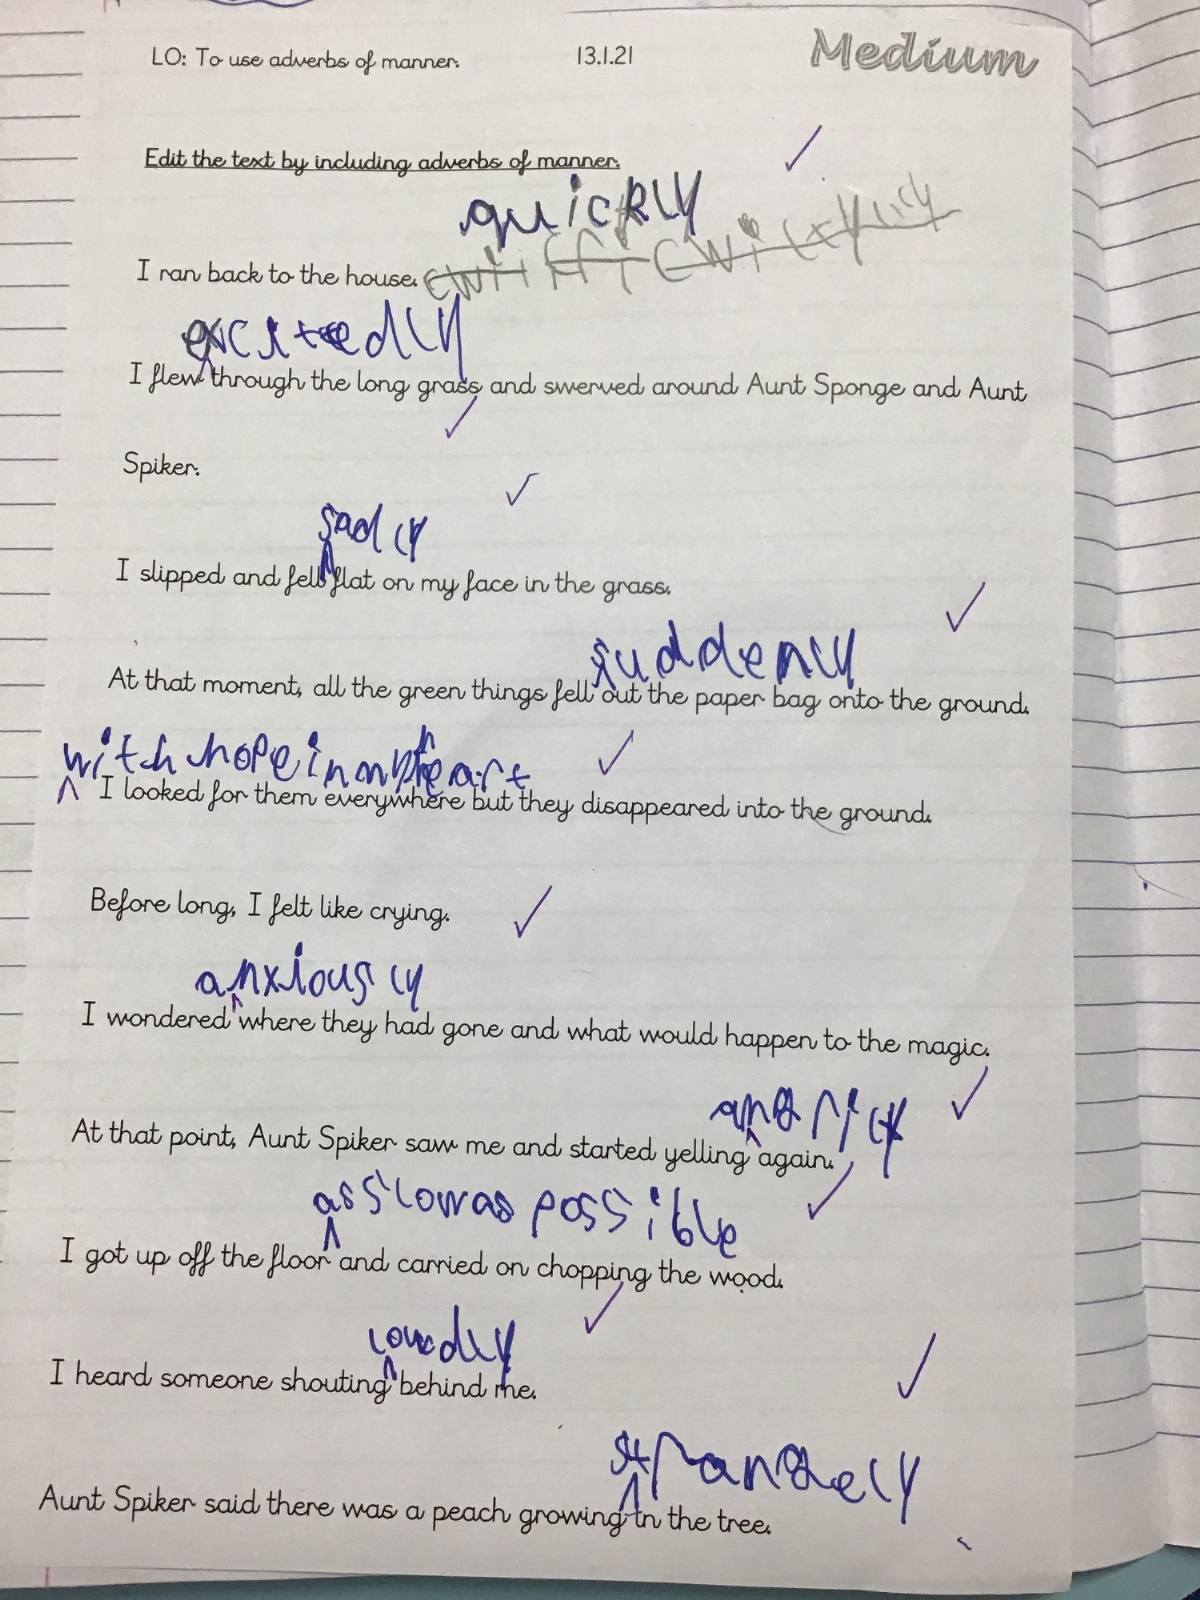 LO: To use adverbs of manner. 13.1.21 Medium
Edit the text by including adverbs of manner.
quickly
I ran back to the house.
excitedly
I flew through the long grass and swerved around Aunt Sponge and Aunt
Spiker.
sadly
I slipped and fell flat on my face in the grass.
suddenly
At that moment, all the green things fell out the paper bag onto the ground.
with hope in my heart
I looked for them everywhere but they disappeared into the ground.
Before long, I felt like crying.
anxiously
I wondered where they had gone and what would happen to the magic.
angrily
At that point, Aunt Spiker saw me and started yelling again.
as slow as possible
I got up off the floor and carried on chopping the wood.
loudly
I heard someone shouting behind me.
strangely
Aunt Spiker said there was a peach growing in the tree.